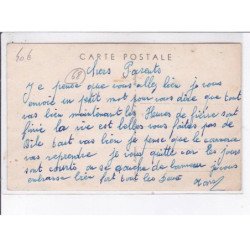 606
CARTE POSTALE
68
Chers Parents
Je pense que vous allez bien je vous
envoie un petit mot pour vous dire que tout
vas bien maintenant les Heures de fièvre sont
finie la vie est belle vous faites pas de
Bile tout vas bien je pense que le
vas reprendre je vous quitte car les jours
sont courts on se de bonheur je vous
embrasse bien fort tout les Deux